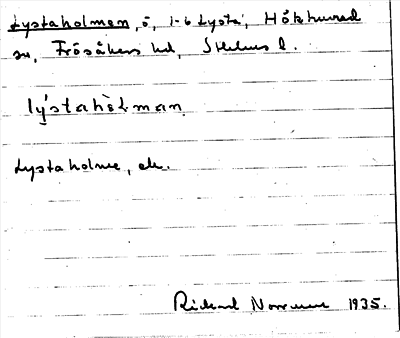 Lystaholmen, ö, i-6 Lysta, Hökhuvud
sn, Frösåkers hd, Sthlms l.
lýstahòlman
Lystaholme, ek.
Rickard 1935.